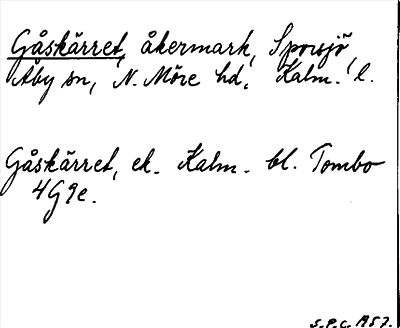 Gåskärret, åkermark, Sporsjö,
Åby sn, N. Möre hd, Kalm. l.
Gåskärret, ek. Kalm. bl. Tombo
4G9e.
S.P.C. 1957.